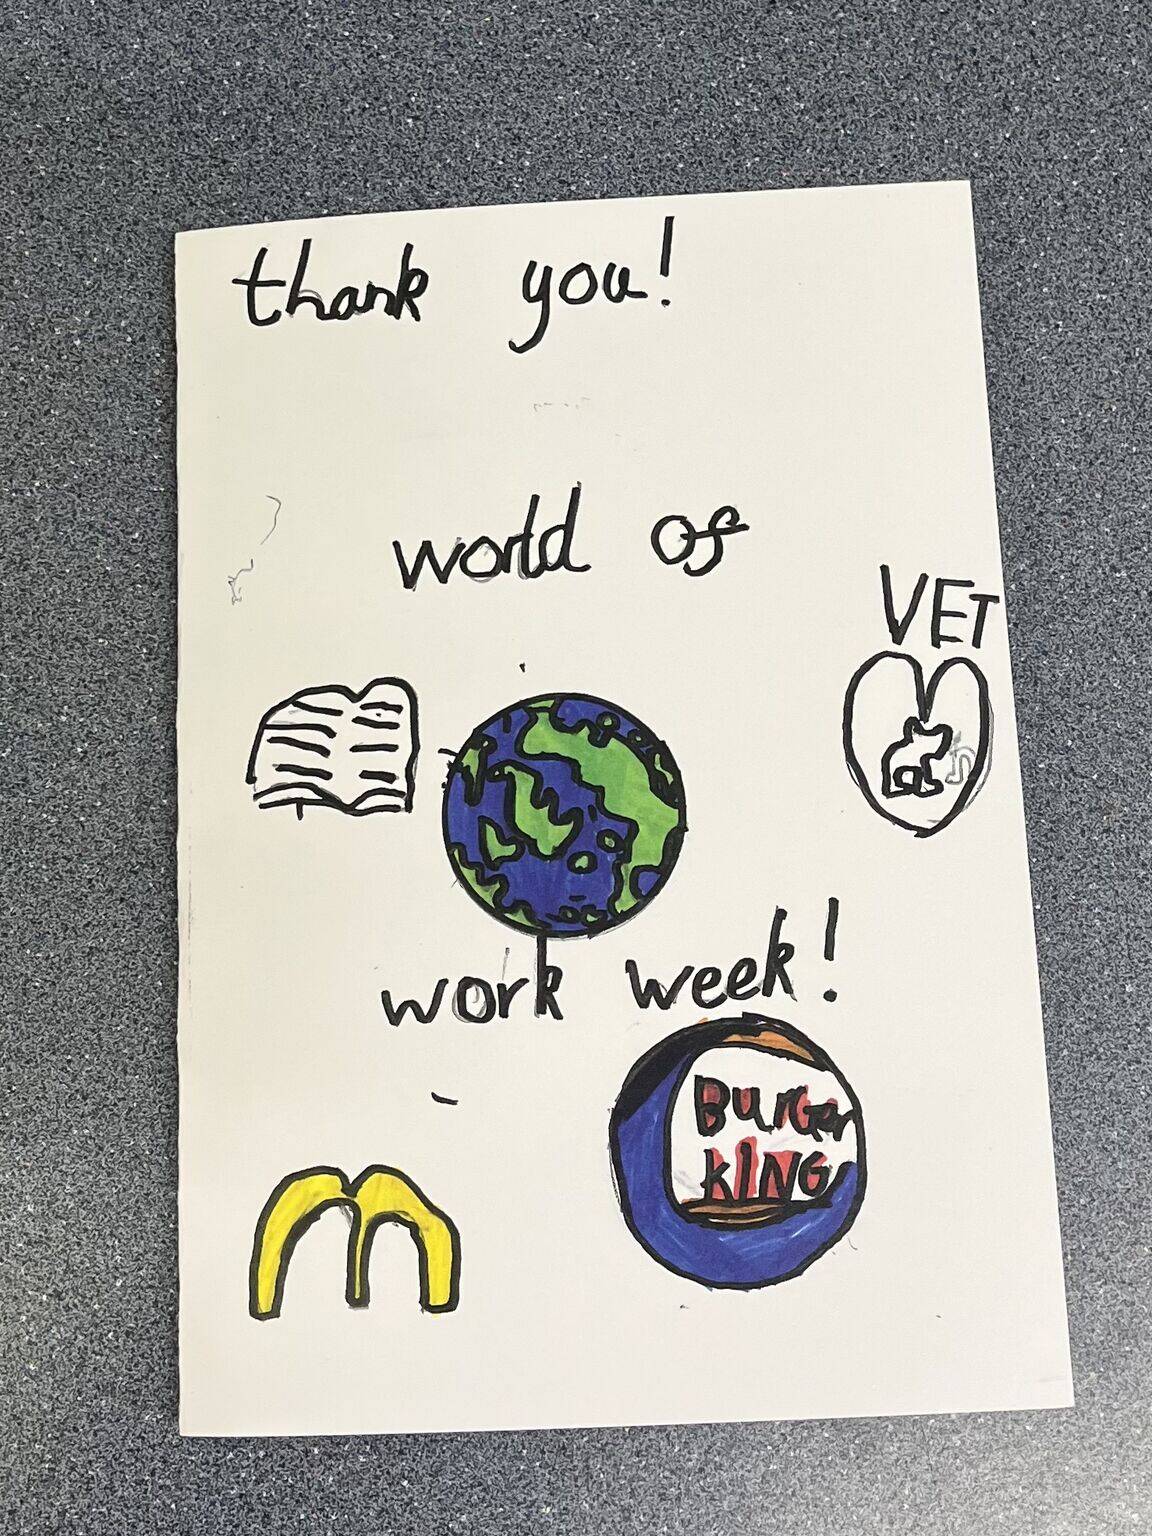 thank you!
world of
VET
work week!
BURGer
KING